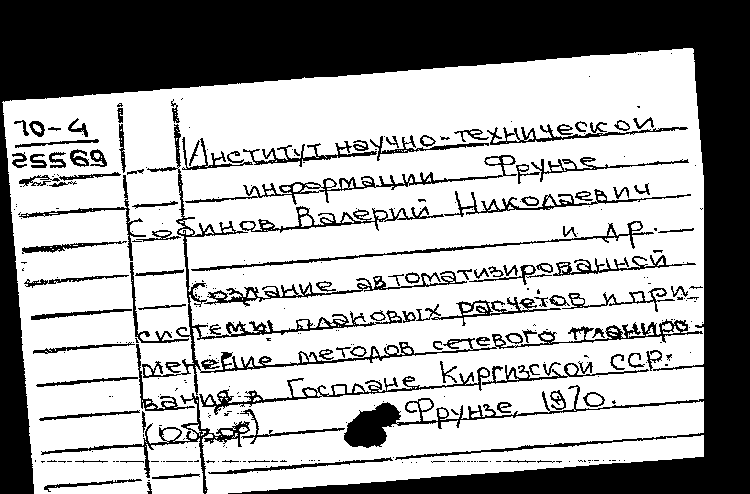 70-4
25569
Институт научно-технической
информации. Фрунзе.
Собинов, Валерий Николаевич
и др.
Создание автоматизированной
системы плановых расчетов и при-
менение методов сетевого планиро-
вания в Госплане Киргизской ССР.
(Обзор). Фрунзе, 1970.